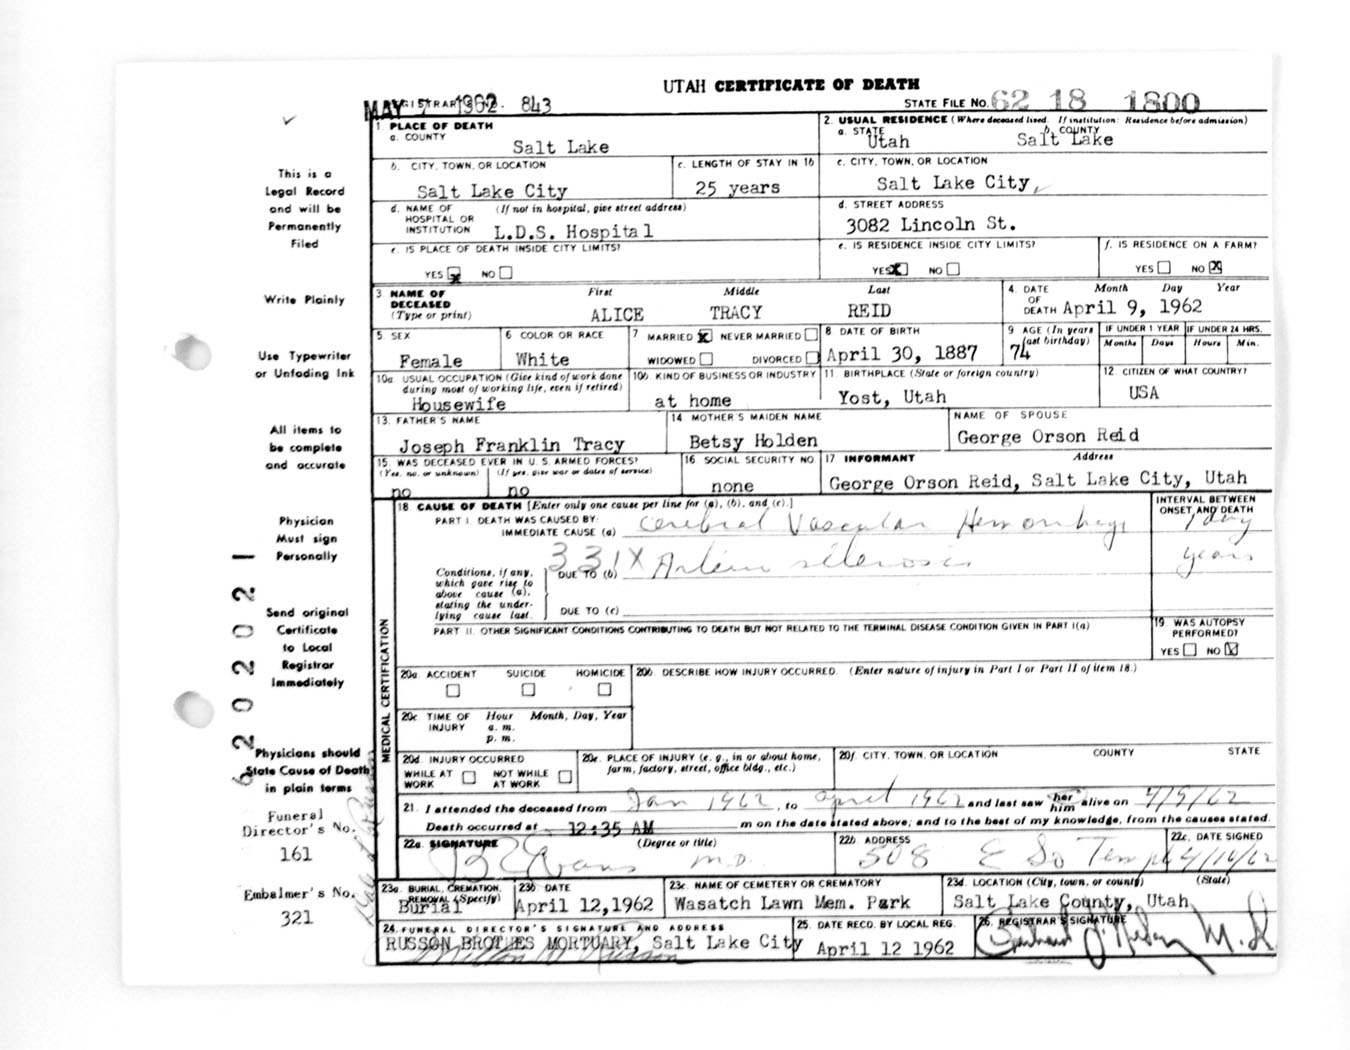 UTAH CERTIFICATE OF DEATH
MAY 7 1962 REGISTRAR'S NO. 843
STATE FILE NO. 62 18 1800
This is a
Legal Record
and will be
Permanently
Filed
Write Plainly
Use Typewriter
or Unfading Ink
All items to
be complete
and accurate
Physician
Must sign
Personally
Send original
Certificate
to Local
Registrar
Immediately
Physicians should
State Cause of Death
in plain terms
Funeral
Director's No.
161
Embalmer's No.
321
1. PLACE OF DEATH
a. COUNTY
Salt Lake
2. USUAL RESIDENCE (Where deceased lived. If institution: Residence before admission)
a. STATE b. COUNTY
Utah Salt Lake
b. CITY, TOWN, OR LOCATION
Salt Lake City
c. LENGTH OF STAY IN 1b
25 years
c. CITY, TOWN, OR LOCATION
Salt Lake City,
d. NAME OF HOSPITAL OR INSTITUTION (If not in hospital, give street address)
L.D.S. Hospital
d. STREET ADDRESS
3082 Lincoln St.
e. IS PLACE OF DEATH INSIDE CITY LIMITS?
YES X NO
e. IS RESIDENCE INSIDE CITY LIMITS?
YES X NO
f. IS RESIDENCE ON A FARM?
YES NO X
3 NAME OF DECEASED (Type or print) First Middle Last
ALICE TRACY REID
4. DATE OF DEATH Month Day Year
April 9, 1962
5. SEX
Female
6 COLOR OR RACE
White
7 MARRIED X NEVER MARRIED
WIDOWED DIVORCED
8 DATE OF BIRTH
April 30, 1887
9 AGE (In years last birthday)
74
IF UNDER 1 YEAR IF UNDER 24 HRS.
Months Days Hours Min.
10a USUAL OCCUPATION (Give kind of work done during most of working life, even if retired)
Housewife
10b KIND OF BUSINESS OR INDUSTRY
at home
11. BIRTHPLACE (State or foreign country)
Yost, Utah
12. CITIZEN OF WHAT COUNTRY?
USA
13. FATHER'S NAME
Joseph Franklin Tracy
14 MOTHER'S MAIDEN NAME
Betsy Holden
NAME OF SPOUSE
George Orson Reid
15. WAS DECEASED EVER IN U.S. ARMED FORCES?
(Yes, no, or unknown) (If yes, give war or dates of service)
no no
16 SOCIAL SECURITY NO
none
17 INFORMANT Address
George Orson Reid, Salt Lake City, Utah
MEDICAL CERTIFICATION
18 CAUSE OF DEATH [Enter only one cause per line for (a), (b), and (c).]
INTERVAL BETWEEN ONSET AND DEATH
PART I. DEATH WAS CAUSED BY:
IMMEDIATE CAUSE (a) Cerebral Vascular Hemorrhage 1 day
331X
Conditions, if any, which gave rise to above cause (a), stating the underlying cause last.
DUE TO (b) Arteriosclerosis years
DUE TO (c)
PART II. OTHER SIGNIFICANT CONDITIONS CONTRIBUTING TO DEATH BUT NOT RELATED TO THE TERMINAL DISEASE CONDITION GIVEN IN PART I(a)
19. WAS AUTOPSY PERFORMED?
YES NO X
20a. ACCIDENT SUICIDE HOMICIDE
20b. DESCRIBE HOW INJURY OCCURRED. (Enter nature of injury in Part I or Part II of item 18.)
20c TIME OF INJURY Hour Month, Day, Year
a. m.
p. m.
20d INJURY OCCURRED
WHILE AT WORK NOT WHILE AT WORK
20e. PLACE OF INJURY (e. g., in or about home, farm, factory, street, office bldg., etc.)
20f. CITY, TOWN, OR LOCATION COUNTY STATE
21. I attended the deceased from Jan 1962, to April 1962 and last saw her him alive on 4/9/62
Death occurred at 12:35 AM m on the date stated above; and to the best of my knowledge, from the causes stated.
22a. SIGNATURE (Degree or title)
Evans M.D.
22b ADDRESS
508 E So Temple
22c. DATE SIGNED
4/10/62
23a. BURIAL, CREMATION, REMOVAL (Specify)
Burial
23b DATE
April 12,1962
23c. NAME OF CEMETERY OR CREMATORY
Wasatch Lawn Mem. Park
23d. LOCATION (City, town, or county) (State)
Salt Lake County, Utah
24. FUNERAL DIRECTOR'S SIGNATURE AND ADDRESS
RUSSON BROTHES MORTUARY, Salt Lake City
25. DATE RECD. BY LOCAL REG.
April 12 1962
26. REGISTRAR'S SIGNATURE
M.D.